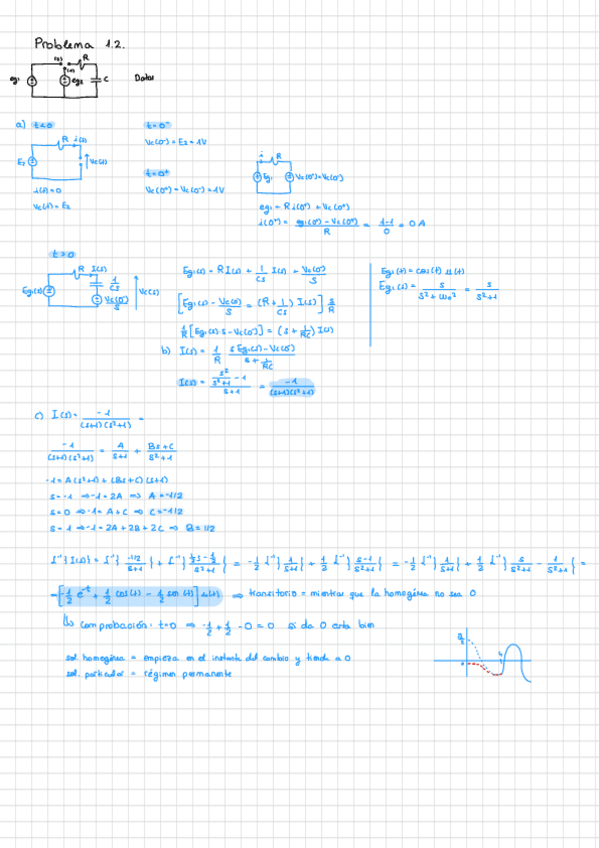 Problema 1.2.
R
eg1
eg2
C
Datos
a) t<0
t=0⁻
R i(t)
Vc(0⁻) = E2 = 1V
E2
Vc(t)
t=0⁺
i(t)=0
Vc(0⁺) = Vc(0⁻) = 1V
Vc(t) = E2
i R
Eg1
Vc(0⁺)=Vc(0⁻)
eg1 = R i(0⁺) + Vc(0⁺)
i(0⁺) = eg1(0⁺) - Vc(0⁺) / R = 1-1 / 0 = 0 A
t>0
R I(s)
Eg1(s)
1/Cs
Vc(0⁻)/s
Vc(s)
Eg1(s) = R I(s) + 1/Cs I(s) + Vc(0⁻)/s
[Eg1(s) - Vc(0⁻)/s = (R + 1/Cs) I(s)] s/R
1/R [Eg1(s) s - Vc(0⁻)] = (s + 1/RC) I(s)
Eg1(t) = cos(t) u(t)
Eg1(s) = s / s²+ω0² = s / s²+1
b) I(s) = 1/R s Eg1(s) - Vc(0⁻) / s + 1/RC
I(s) = s²/s²+1 - 1 / s+1 = -1 / (s+1)(s²+1)
c) I(s) = -1 / (s+1)(s²+1) =
-1 / (s+1)(s²+1) = A / s+1 + Bs+C / s²+1
-1 = A(s²+1) + (Bs+C)(s+1)
s=-1 ⇒ -1 = 2A ⇒ A = -1/2
s=0 ⇒ -1 = A+C ⇒ C = -1/2
s=1 ⇒ -1 = 2A + 2B + 2C ⇒ B = 1/2
L⁻¹{I(s)} = L⁻¹{-1/2 / s+1} + L⁻¹{1/2 s - 1/2 / s²+1} = -1/2 L⁻¹{1 / s+1} + 1/2 L⁻¹{s-1 / s²+1} = -1/2 L⁻¹{1 / s+1} + 1/2 L⁻¹{s / s²+1 - 1 / s²+1} =
= [-1/2 e⁻ᵗ + 1/2 cos(t) - 1/2 sen(t)] u(t) ⇒ transitorio = mientras que la homogénea no sea 0
↳ comprobación: t=0 ⇒ -1/2 + 1/2 - 0 = 0 si da 0 esta bien
sol. homogénea = empieza en el instante del cambio y tiende a 0
sol. particular = régimen permanente